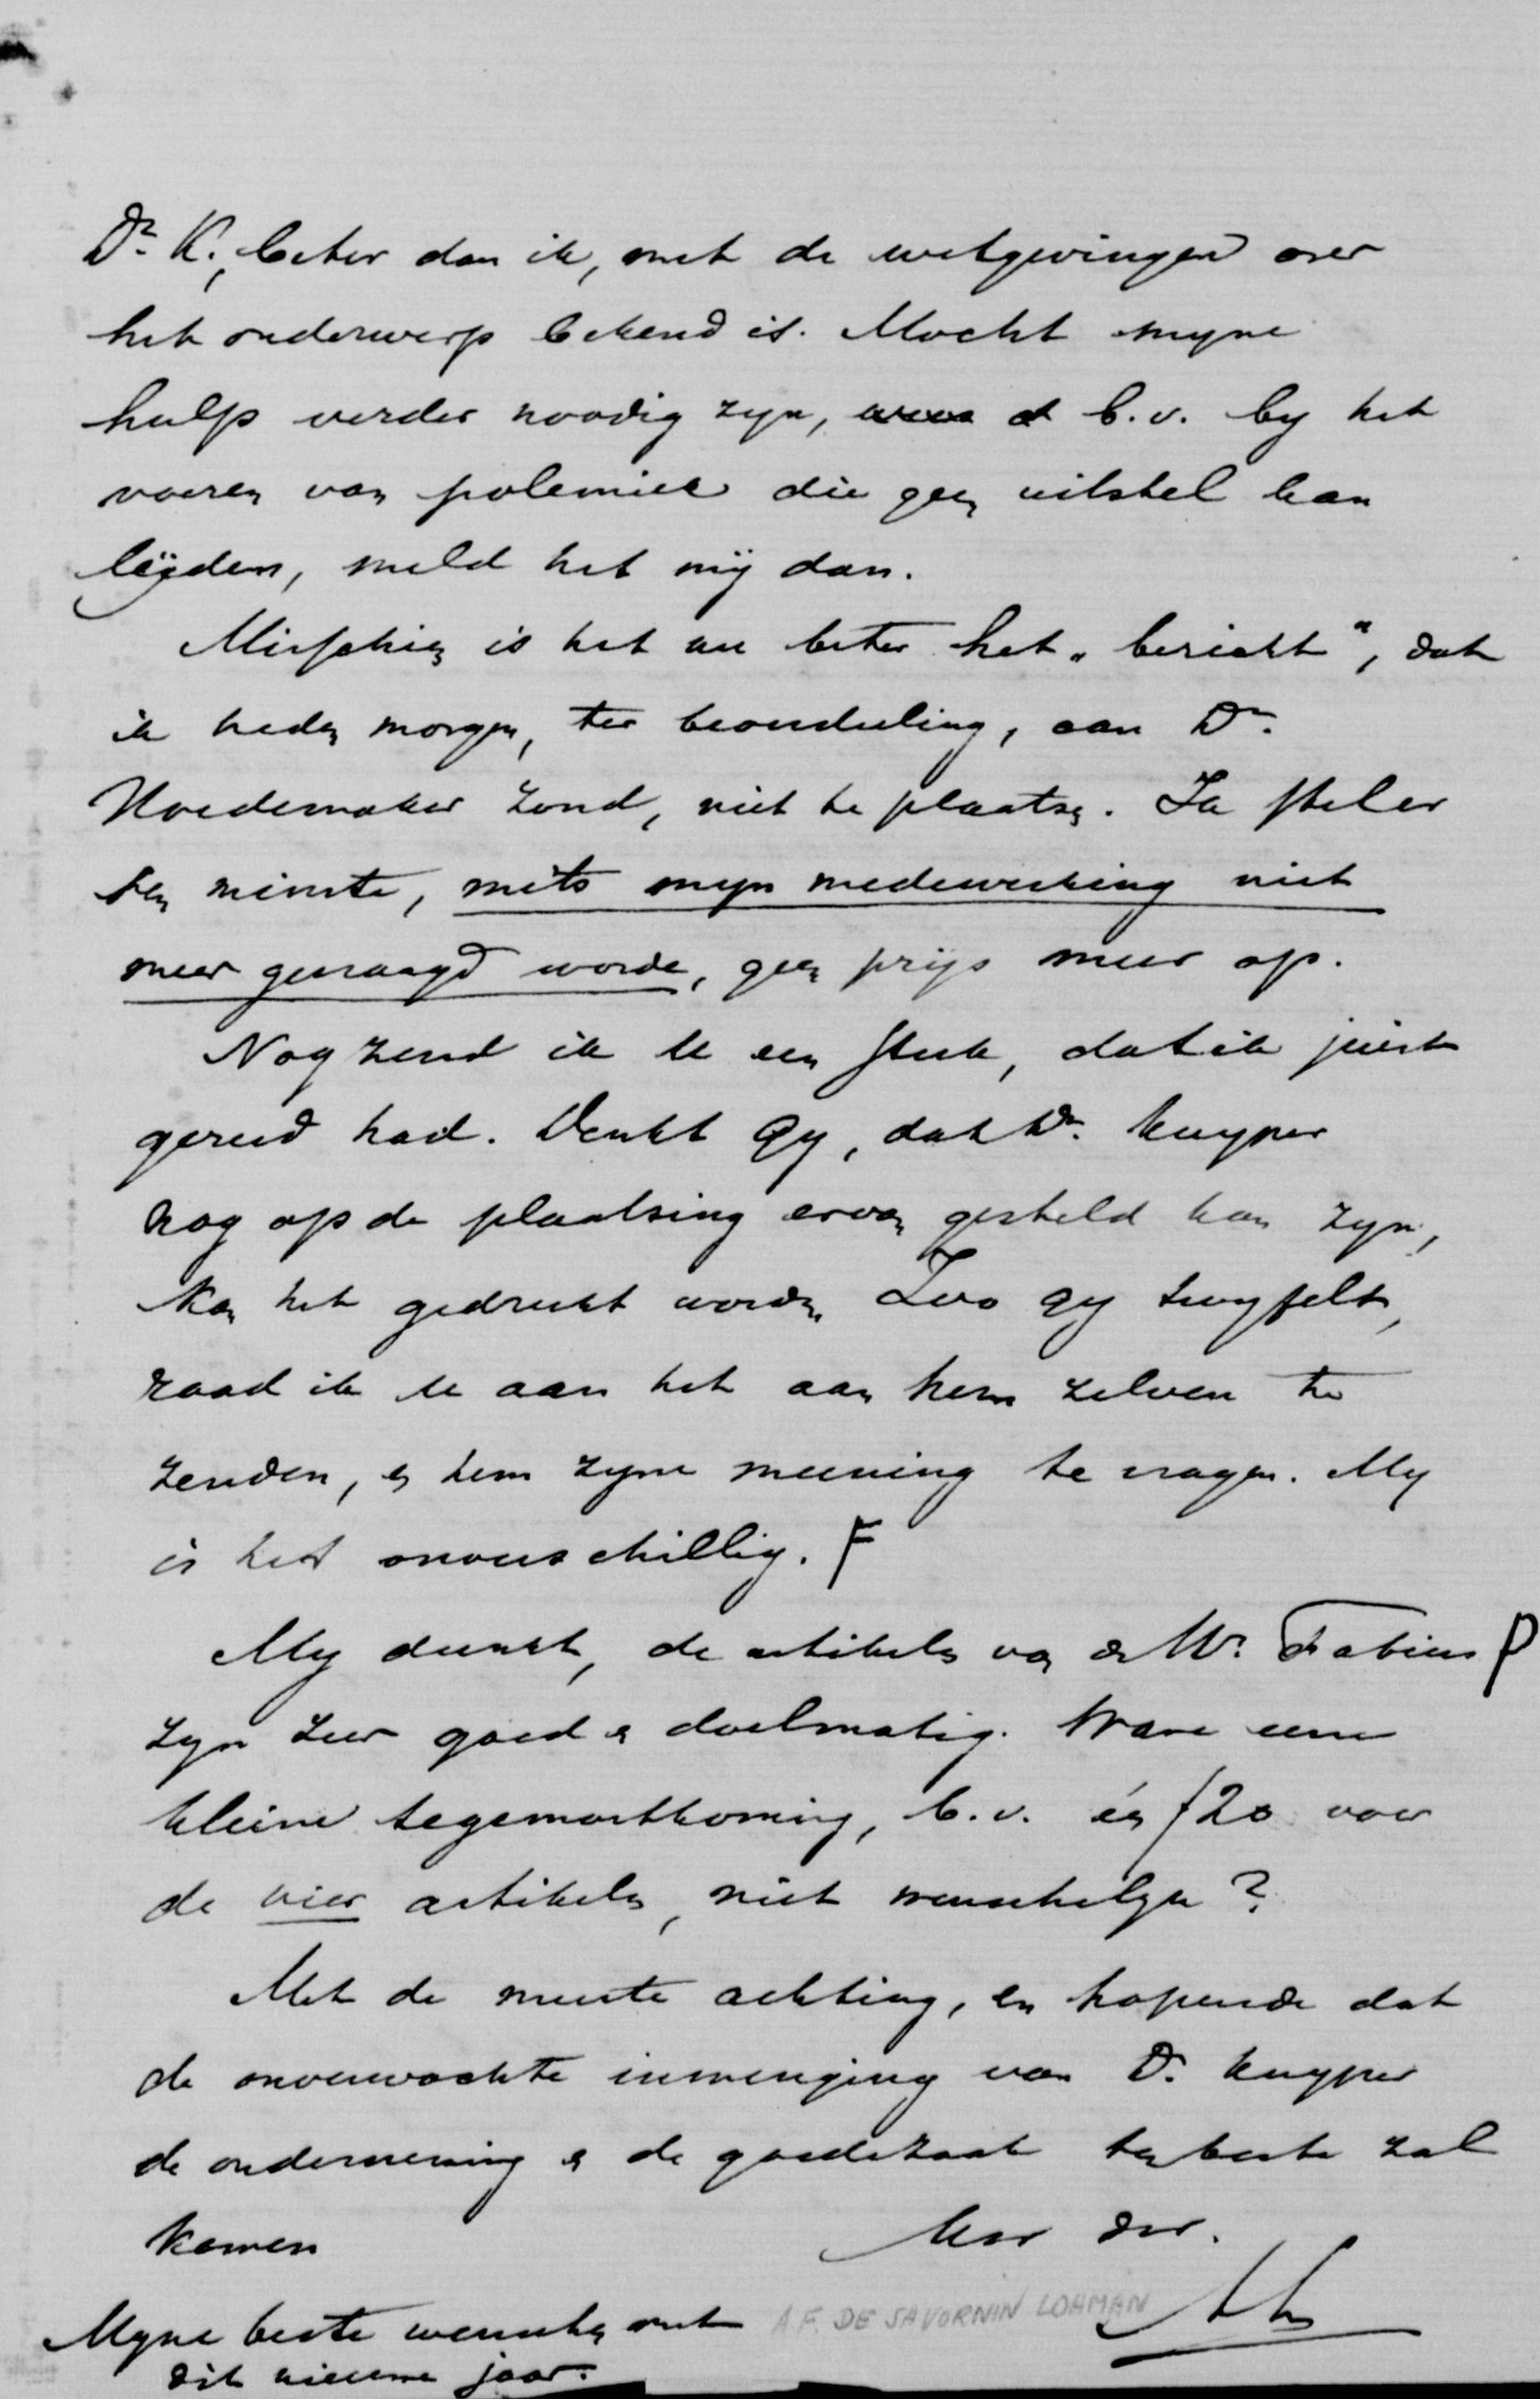 Dr. K., beter dan ik, met de wetgevingen over
het onderwerp bekend is. Mocht myne
hulp verder noodig zyn, b.v. by het
voeren van polemiek die geen uitstel kan
lijden, meld het mij dan.
Misschien is het nu beter het „bericht", dat
ik heden morgen, ter beoordeeling, aan Dr.
Hoedemaker zond, niet te plaatsen. Ik stel er
ten minste, mits myn medewerking niet
meer gevraagd worde, geen prijs meer op.
Nog zend ik U een stuk, dat ik juist
gereed had. Denkt Gy, dat Dr. Kuyper
nog op de plaatsing ervan gesteld kan zyn,
kan het gedrukt worden. Zoo gy twyfelt,
raad ik U aan het aan hem zelven te
zenden, en hem zyne meening te vragen. My
is het onverschillig. F
My dunkt, de artikelen van den Mr. Fabius
zyn zeer goed en doelmatig. Ware eene
kleine tegemoetkoming, b.v. f20 voor
de vier artikelen, niet wenschelyk?
Met de meeste achting, en hopende dat
de onverwachte inmenging van Dr. Kuyper
de onderneming en de goede zaak ten beste zal
komen
Uw dr.
A.F. DE SAVORNIN LOHMAN
Myne beste wenschen met
dit nieuwe jaar.